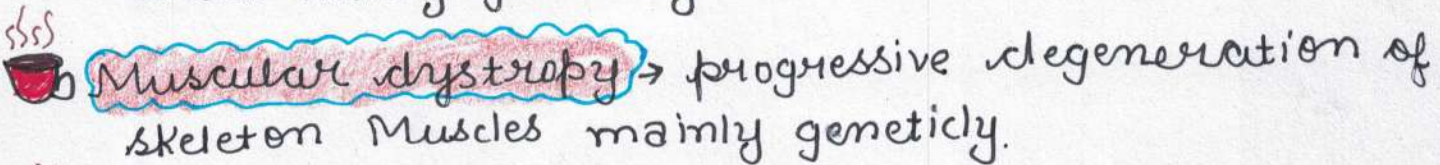 Muscular dystropy → progressive degeneration of
skeleton Muscles mainly geneticly.